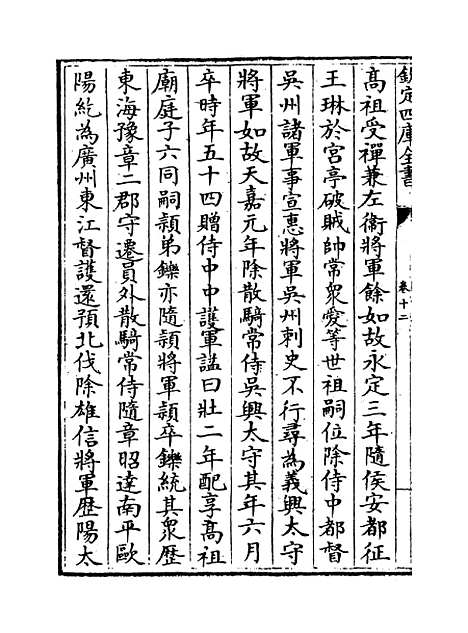 欽定四庫全書
卷十二
高祖受禪兼左衞將軍餘如故永定三年隨侯安都征
王琳於宮亭破賊帥常衆愛等世祖嗣位除侍中都督
吳州諸軍事宣惠將軍吳州刺史不行尋為義興太守
將軍如故天嘉元年除散騎常侍吳興太守其年六月
卒時年五十四贈侍中中護軍謚曰壯二年配享高祖
廟庭子六同嗣頴弟鑠亦隨頴將軍頴卒鑠統其衆歷
東海豫章二郡守遷員外散騎常侍隨章昭達南平歐
陽紇為廣州東江督護還預北伐除雄信將軍歷陽太